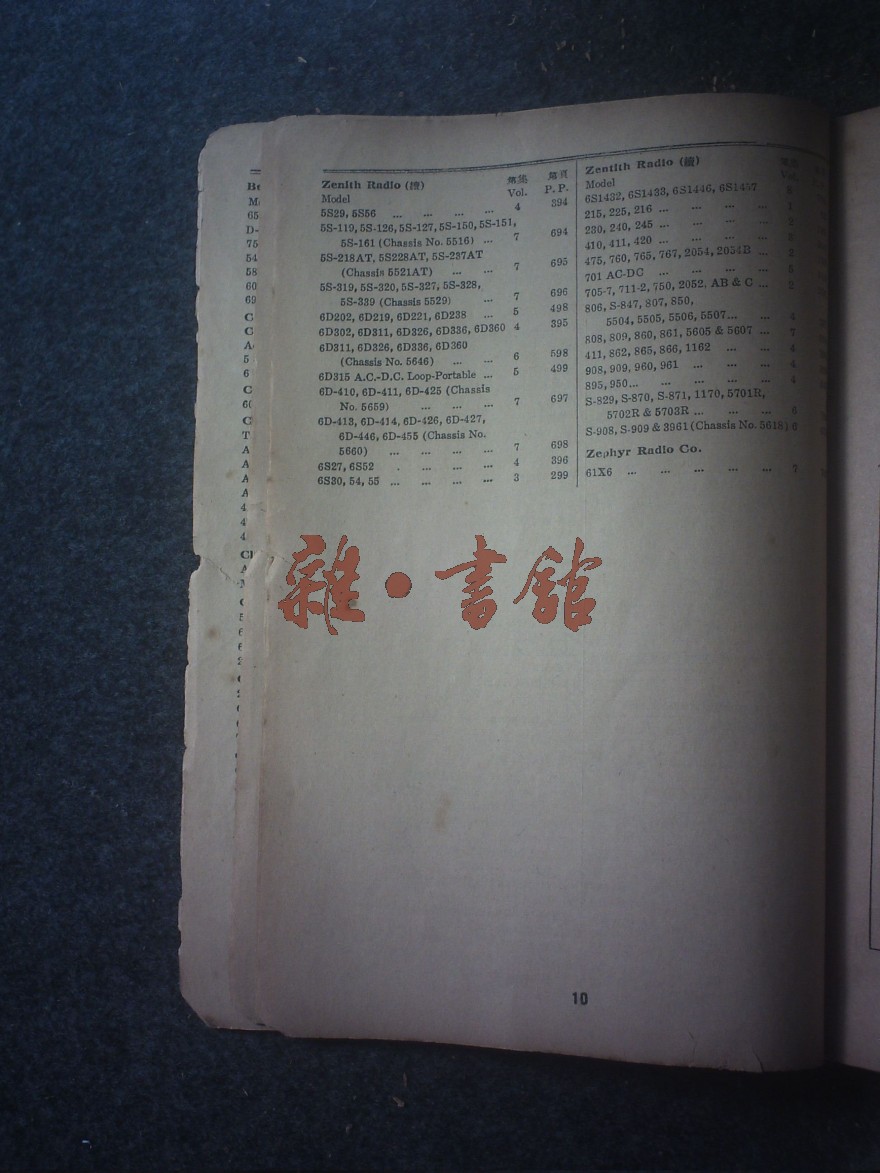 Zenith Radio (續)
第集 第頁
Model Vol. P.P.
5S29, 5S56 ... ... ... ... 4 394
5S-119, 5S-126, 5S-127, 5S-150, 5S-151,
5S-161 (Chassis No. 5516) ... 7 694
5S-218AT, 5S228AT, 5S-237AT
(Chassis 5521AT) ... ... 7 695
5S-319, 5S-320, 5S-327, 5S-328,
5S-339 (Chassis 5529) ... 7 696
6D202, 6D219, 6D221, 6D238 ... 5 498
6D302, 6D311, 6D326, 6D336, 6D360 4 395
6D311, 6D326, 6D336, 6D360
(Chassis No. 5646) ... ... 6 598
6D315 A.C.-D.C. Loop-Portable ... 5 499
6D-410, 6D-411, 6D-425 (Chassis
No. 5659) ... ... ... 7 697
6D-413, 6D-414, 6D-426, 6D-427,
6D-446, 6D-455 (Chassis No.
5660) ... ... ... ... 7 698
6S27, 6S52 . ... ... ... 4 396
6S30, 54, 55 ... ... ... ... 3 299
Zentith Radio (續)
Model Vol.
6S1432, 6S1433, 6S1446, 6S1457
215, 225, 216 ... ... ... ... 1
230, 240, 245 ... ... ... ... 2
410, 411, 420 ... ... ... ...
475, 760, 765, 767, 2054, 2054B ... 2
701 AC-DC ... ... ... ... 5
705-7, 711-2, 750, 2052, AB & C ... 2
806, S-847, 807, 850,
5504, 5505, 5506, 5507... ... 4
808, 809, 860, 861, 5605 & 5607 ... 7
411, 862, 865, 866, 1162 ... ... 4
908, 909, 960, 961 ... ... ... 4
895, 950... ... ... ... ... 4
S-829, S-870, S-871, 1170, 5701R,
5702R & 5703R ... ... ... 6
S-908, S-909 & 3961 (Chassis No. 5618) 6
Zephyr Radio Co.
61X6 ... ... ... ... ... 7
雜·書館
10